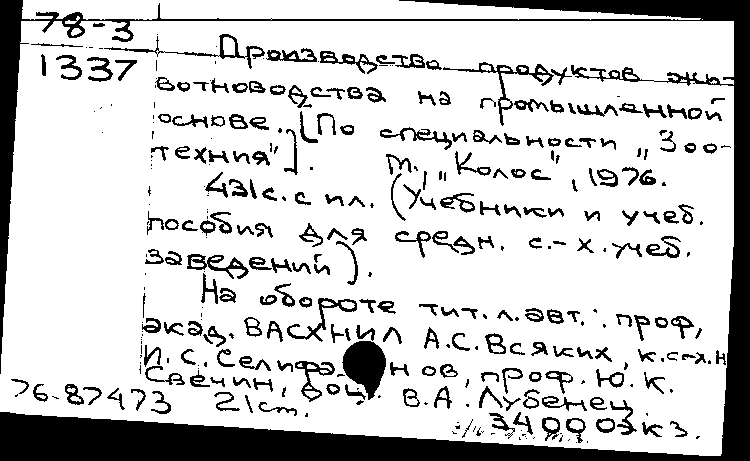 78-3
Производство продуктов жи-
1337
вотноводства на промышленной
основе. [По специальности „Зоо-
техния"]. М., „Колос", 1976.
431с. с ил. (Учебники и учеб.
пособия для средн. с.-х. учеб.
заведений).
На обороте тит. л. авт.: проф,
акад. ВАСХНИЛ А.С. Всяких, к. с-х. н
Свечин, доц. В.А. Лубенец.
76-87473 21 см.
34000экз.